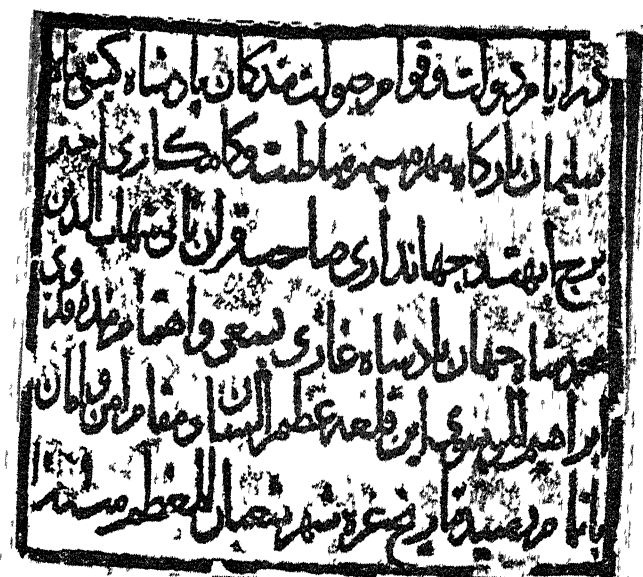 در ایام دولت و قوام صولت بندکان پادشاه کیتی پناه
سلیمان بارکاه مهر سپهر سلطنت و کامکاری اختر
برج ابهت و جهانداری صاحب قران ثانی شهاب الدین
محمد شاه جهان پادشاه غازی بسعی و اهتمام بنده فدوی
ابراهیم الموسوی این قلعه عظیم البنیان و مقام امن و امان
باتمام رسید بتاریخ غره شهر شعبان المعظم سنه